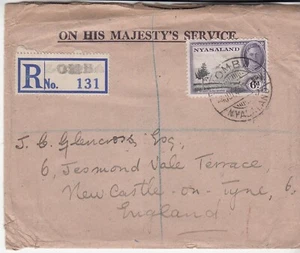 ON HIS MAJESTY'S SERVICE.
NYASALAND
ZOMBA
R ZOMBA
No. 131
6d
NYASALAND
J. G. Glencross Esq.,
6, Jesmond Vale Terrace,
New Castle-on-Tyne, 6.
England